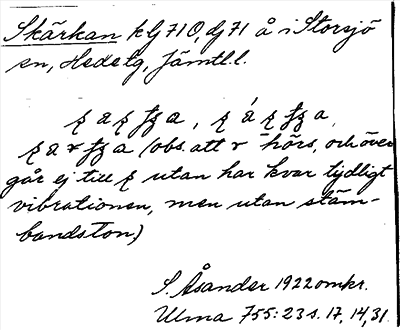 Skärkan klj 71 O, dj 71 å i Storsjö
en, Hede tg, Jämtl. l.
(obs. att r hörs, och över
går ej till utan har kvar tydligt
vibrationen, men utan stäm-
bandston)
S. Åsander 1922 omkr.
Ulma 755:23 s. 17, 14, 31.